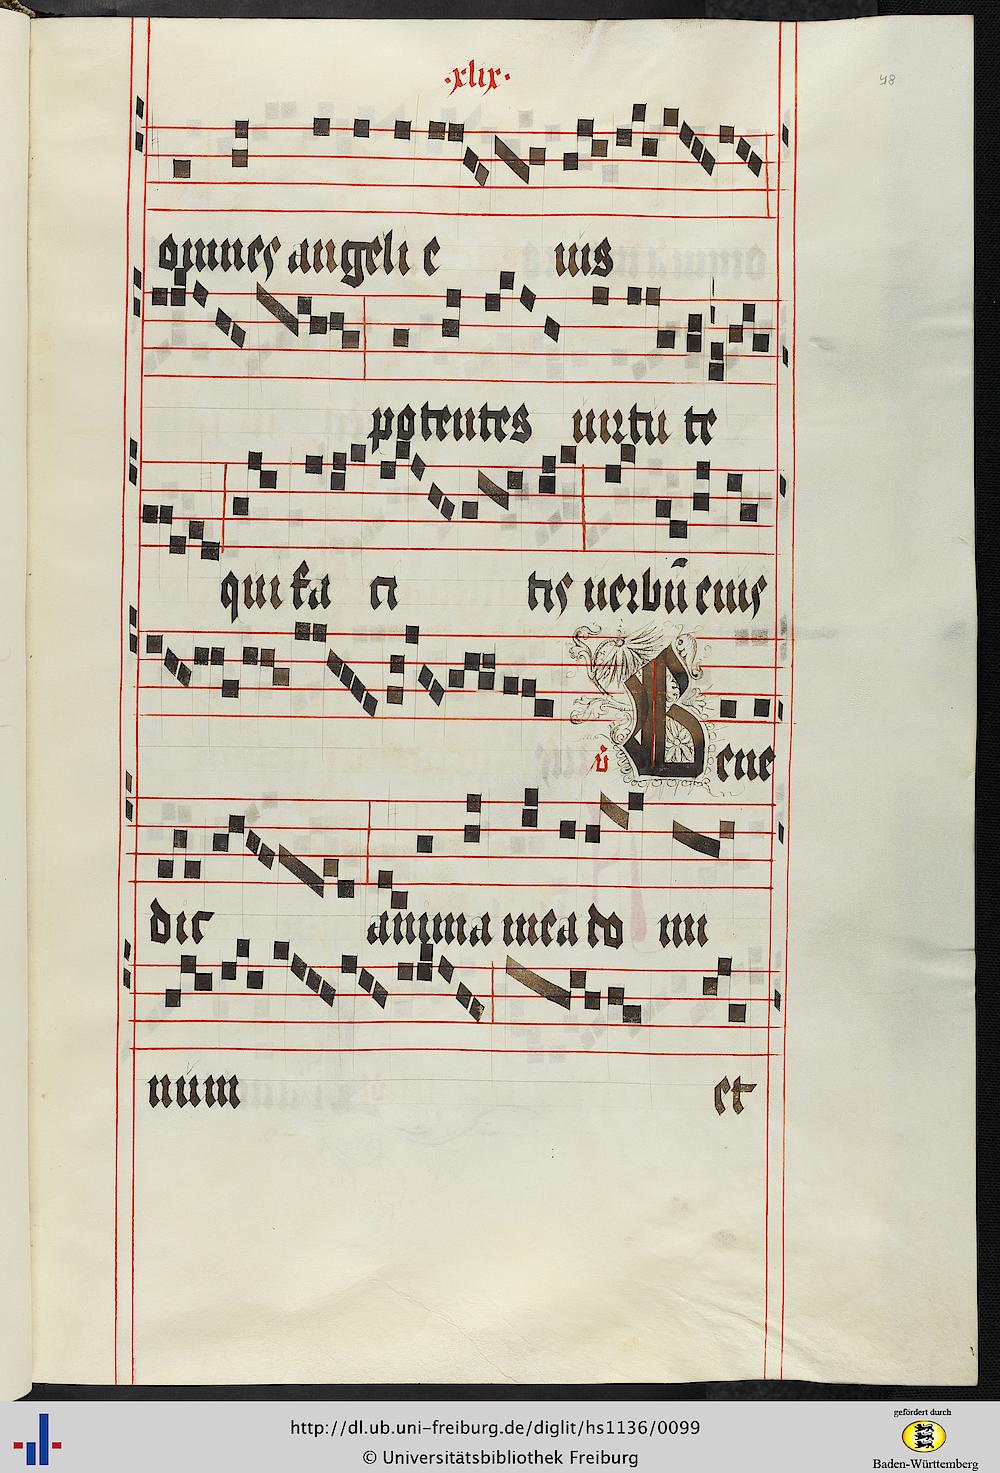 ·xlix·
48
omnes angeli e ius
potentes uirtu te
qui fa ci tis uerbū eius
v̇ Bene
dic anima mea do mi
num et
http://dl.ub.uni-freiburg.de/diglit/hs1136/0099
© Universitätsbibliothek Freiburg
gefördert durch
Baden-Württemberg